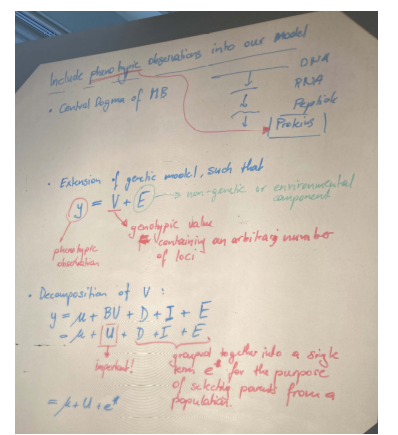 Include phenotypic observations into our model
• Central Dogma of MB
DNA
RNA
Peptide
Proteins
• Extension of genetic model, such that
y = V + E → non-genetic or environmental
component
genotypic value
containing an arbitrary number
of loci
phenotypic
observation
• Decomposition of V :
y = μ + BV + D + I + E
= μ + U + D + I + E
important!
grouped together into a single
term e* for the purpose
of selecting parents from a
population.
= μ + U + e*